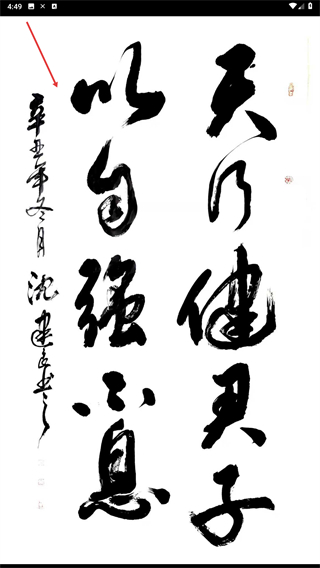 4:49
天行健君子
以自强不息
辛丑年冬月沈建